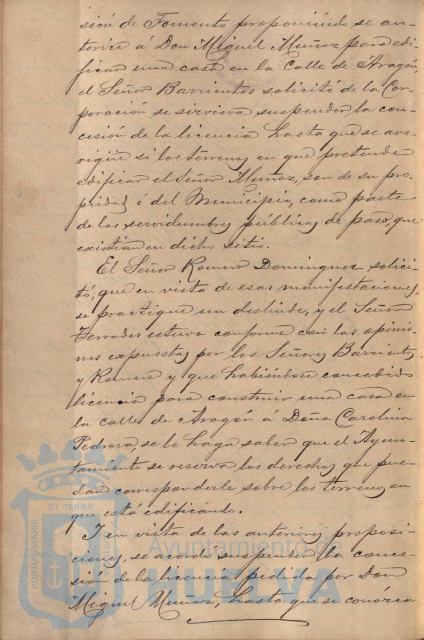 sión de Fomento proponiendo se au-
torice á Don Miguel Muñoz para edi-
ficar una casa en la Calle de Aragón,
el Señor Barrientos solicitó de la Cor-
poración se sirviera suspender la con-
cesión de la licencia hasta que se ave-
rigüe si los terrenos en que pretende
edificar el Señor Muñoz, son de su pro-
piedad ó del Municipio, como parte
de las servidumbres públicas de paso, que
existían en dicho sitio.
El Señor Romero Dominguez solici-
tó, que en vista de esas manifestaciones,
se practique un deslinde, y el Señor
Terrades estuvo conforme con las opinio-
nes expuestas por los Señores Barrientos
y Romero y que habiéndose concedido
licencia para construir una casa en
la calle de Aragón á Doña Carolina
Pedrara, se le haga saber que el Ayun-
tamiento se reserva los derechos que pue-
dan corresponderle sobre los terrenos en
que está edificando.
Y en vista de las anteriores proposi-
ciones, se acordó suspender la conce-
sión de la licencia pedida por Don
Miguel Muñoz, hasta que se conozca
ET TERRA
PORTUS MARIS
Ayuntamiento de
HUELVA